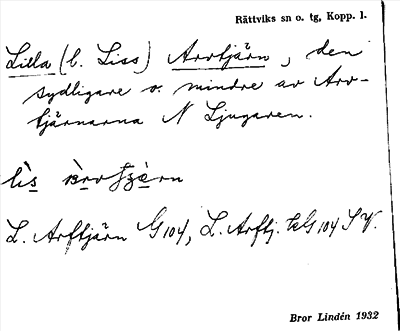 Rättviks sn o. tg, Kopp. l.
Lilla (l. Liss) Arvtjärn, den
sydligare o. mindre av Arv-
tjärnarna N Ljugaren.
L. Arftjärn G 104, L. Arftj. G 104 SV.
Bror Lindén 1932